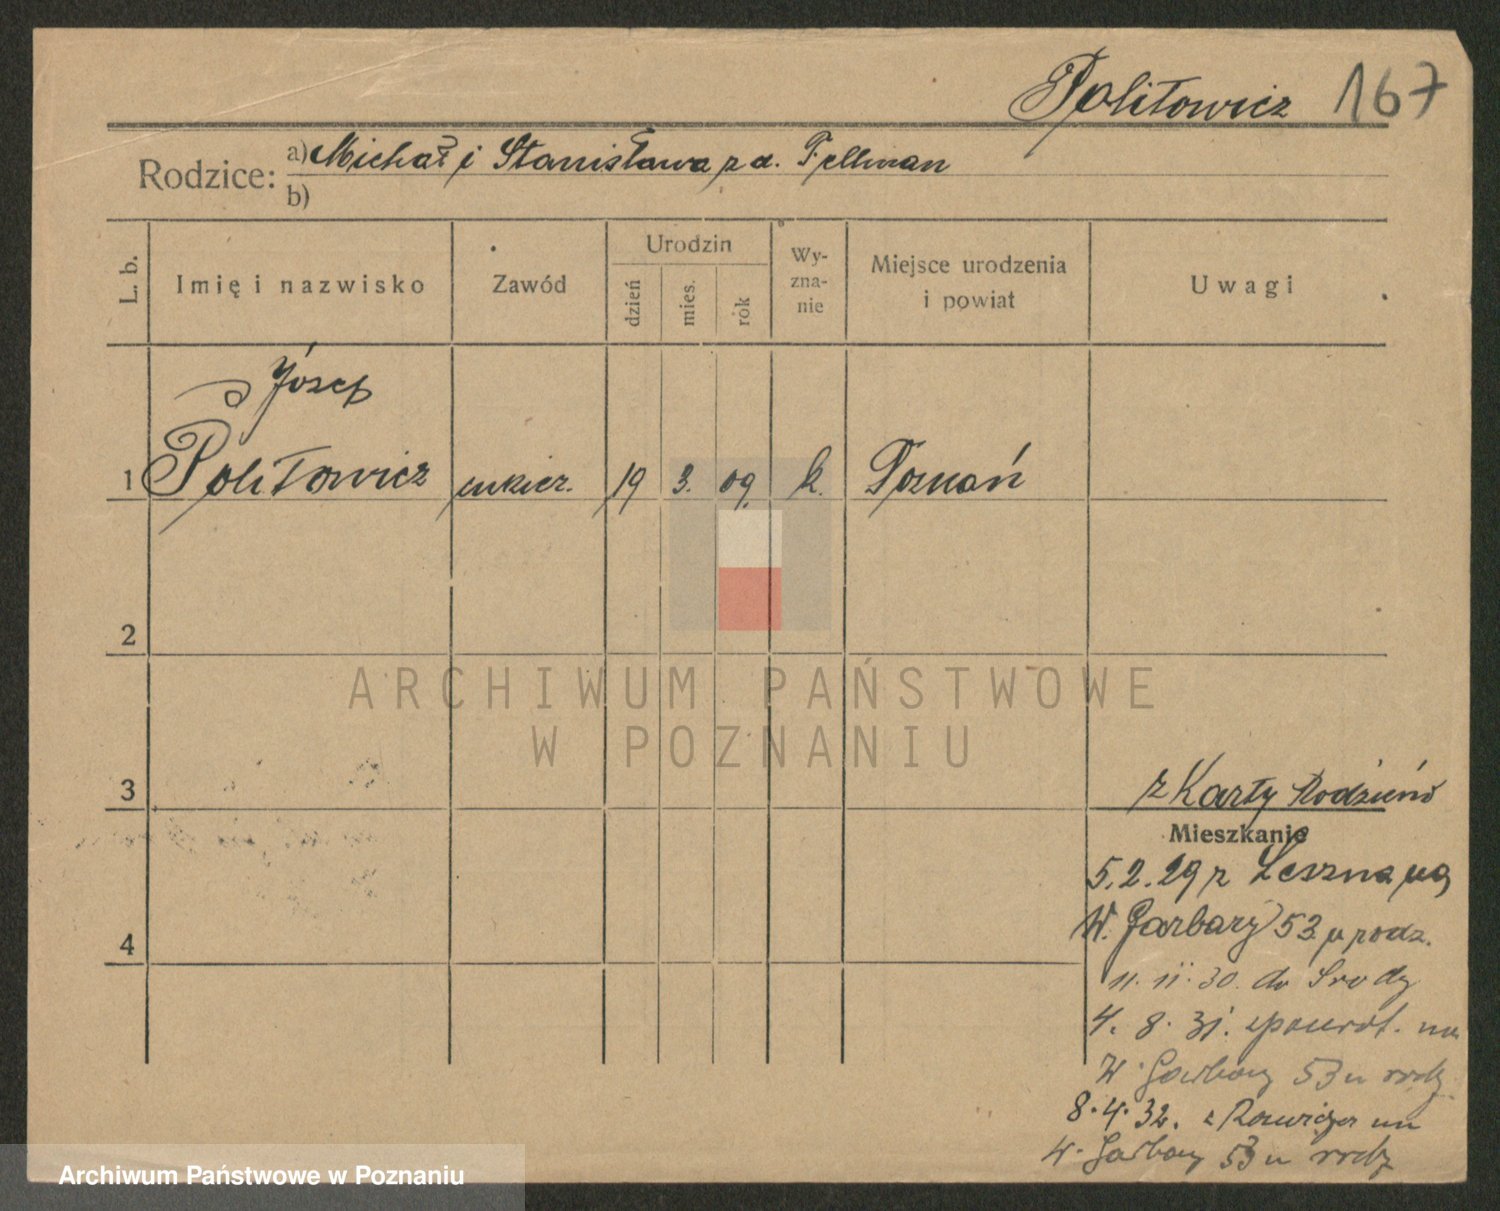 Politowicz 167
Rodzice: a) Michał i Stanisława z d. Fellman
b)
L. b.
Imię i nazwisko
Zawód
Urodzin
dzień
mies.
rok
Wy-
zna-
nie
Miejsce urodzenia
i powiat
Uwagi
Józef
1 Politowicz cukier. 19 3. 09. k. Poznań
2
ARCHIWUM PAŃSTWOWE
W POZNANIU
3
z Karty Rodzinn
Mieszkanie
5.2.29 z Leszna na
4
W. Garbary 53 u rodz.
11.11.30. do Środy
4. 8. 31. z powrot. na
W. Garbary 53 u rodz
8.4.32. z Rawicza na
W. Garbary 53 u rodz
Archiwum Państwowe w Poznaniu